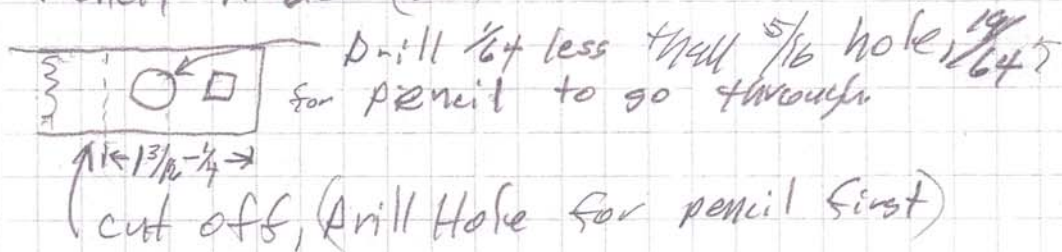 Drill 1/64 less than 5/16 hole, 19/64?
for pencil to go through.
1 3/16-1/4
cut off, (Drill Hole for pencil first)